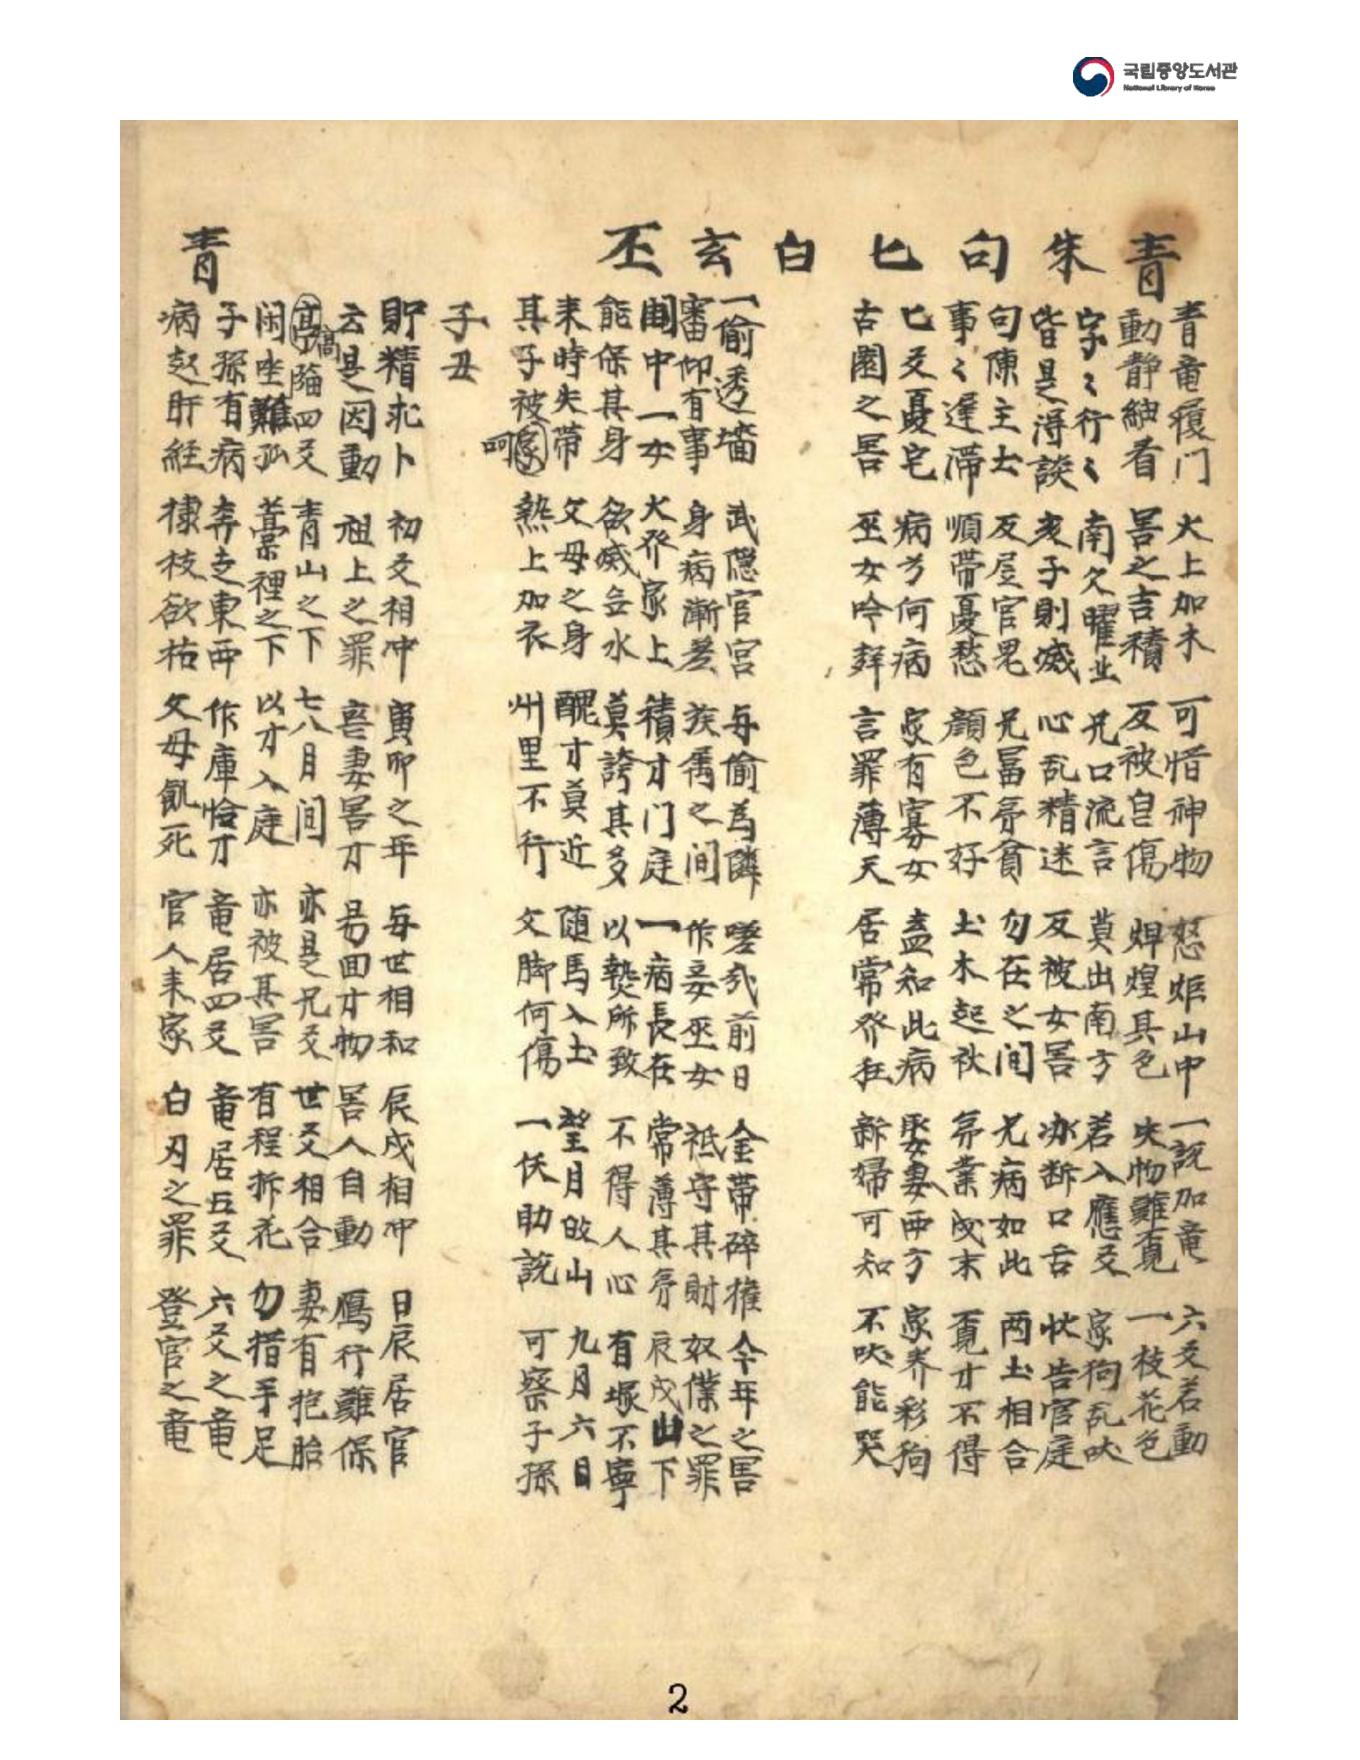 국립중앙도서관
National Library of Korea
青 朱 句 匕 白 玄 丕 青
青竜覆门 大上加木 可惜神物 怒炬山中 一説加竜 六爻若動
動静細看 害之吉積 反被自傷 焊煌其色 失物難覓 一枝花色
字〻行〻 南欠曜 兄口流言 莫出南方 若入應爻 家狗乱吠
皆是得談 亥子則滅 心乱精迷 反被女害 亦断口舌 状告官庭
句陳主土 反居官鬼 兄富弟貧 勿在之间 尤病如此 两土相合
事〻遅滯 順帶憂愁 顔色不好 土木起 弟業成未 覓才不得
匕爻憂宅 病方何病 家有寡女 盖知此病 娶妻両方 家养彩狗
古園之害 巫女吟 言罪薄天 居常發狂 新婦可知 不吠能哭
一偷透墻 武隠官宮 与偷為隣 嗟哉前日 金帶碎権 今年之害
審仰有事 身病漸差 族属之间 作妾巫女 祗守其財 奴僕之罪
閨中一女 大發家上 積才门庭 一病長在 常薄其弟 辰戌山下
能保其身 欲滅去水 莫誇其多 以熱所致 不得人心 有塚不寧
来時失帶 父母之身 醜才莫近 随馬入土 望月故山 九月六日
其子被家呵 熱上加衣 州里不行 文脚何傷 一伏助説 可察子孫
子丑
貯精求卜 初爻相冲 寅卯之年 每世相和 辰戌相冲 日辰居官
云是因動 祖上之罪 喪妻害才 另回才物 害人自動 鴈行難保
高臨四爻 青山之下 七八月间 亦是兄爻 世爻相合 妻有抱胎
闲坐難孤 蒿裡之下 以才入庭 亦被其害 有程折花 勿措手足
子孫有病 奔走東西 作庫恰才 竜居四爻 竜居五爻 六爻之竜
病起肝経 棣枝欲枯 父母飢死 官人来家 白刃之罪 登官之竜
2